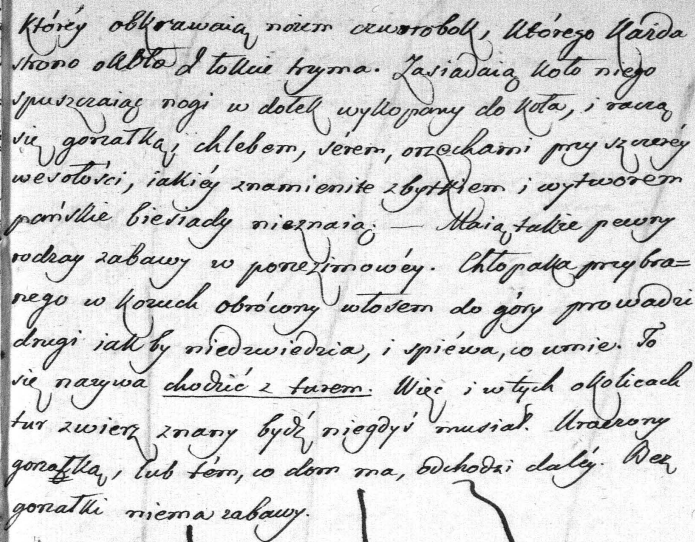 któréy obkrawaią nożem czworobok, którego każda
strona około 2 łokcie trzyma. Zasiadaią koło niego
spuszczaiąc nogi w dołek wykopany do koła, i raczą
się gorzałką, chlebem, sérem, orzechami przy szczeréy
wesołości, iakiéy znamienite zbytkiem i wytworem
pańskie biesiady nieznaią. — Maią także pewny
rodzay zabawy w porze zimowéy. Chłopaka przybra=
nego w kożuch obrócony włosem do góry prowadzi
drugi iak by niedzwiedzia, i spiéwa, co umie. To
się nazywa chodzić z turem. Więc i w tych okolicach
tur zwierz znany bydź niegdyś musiał. Uraczony
gorzałką, lub tém, co dom ma, odchodzi daléy. Bez
gorzałki niema zabawy.